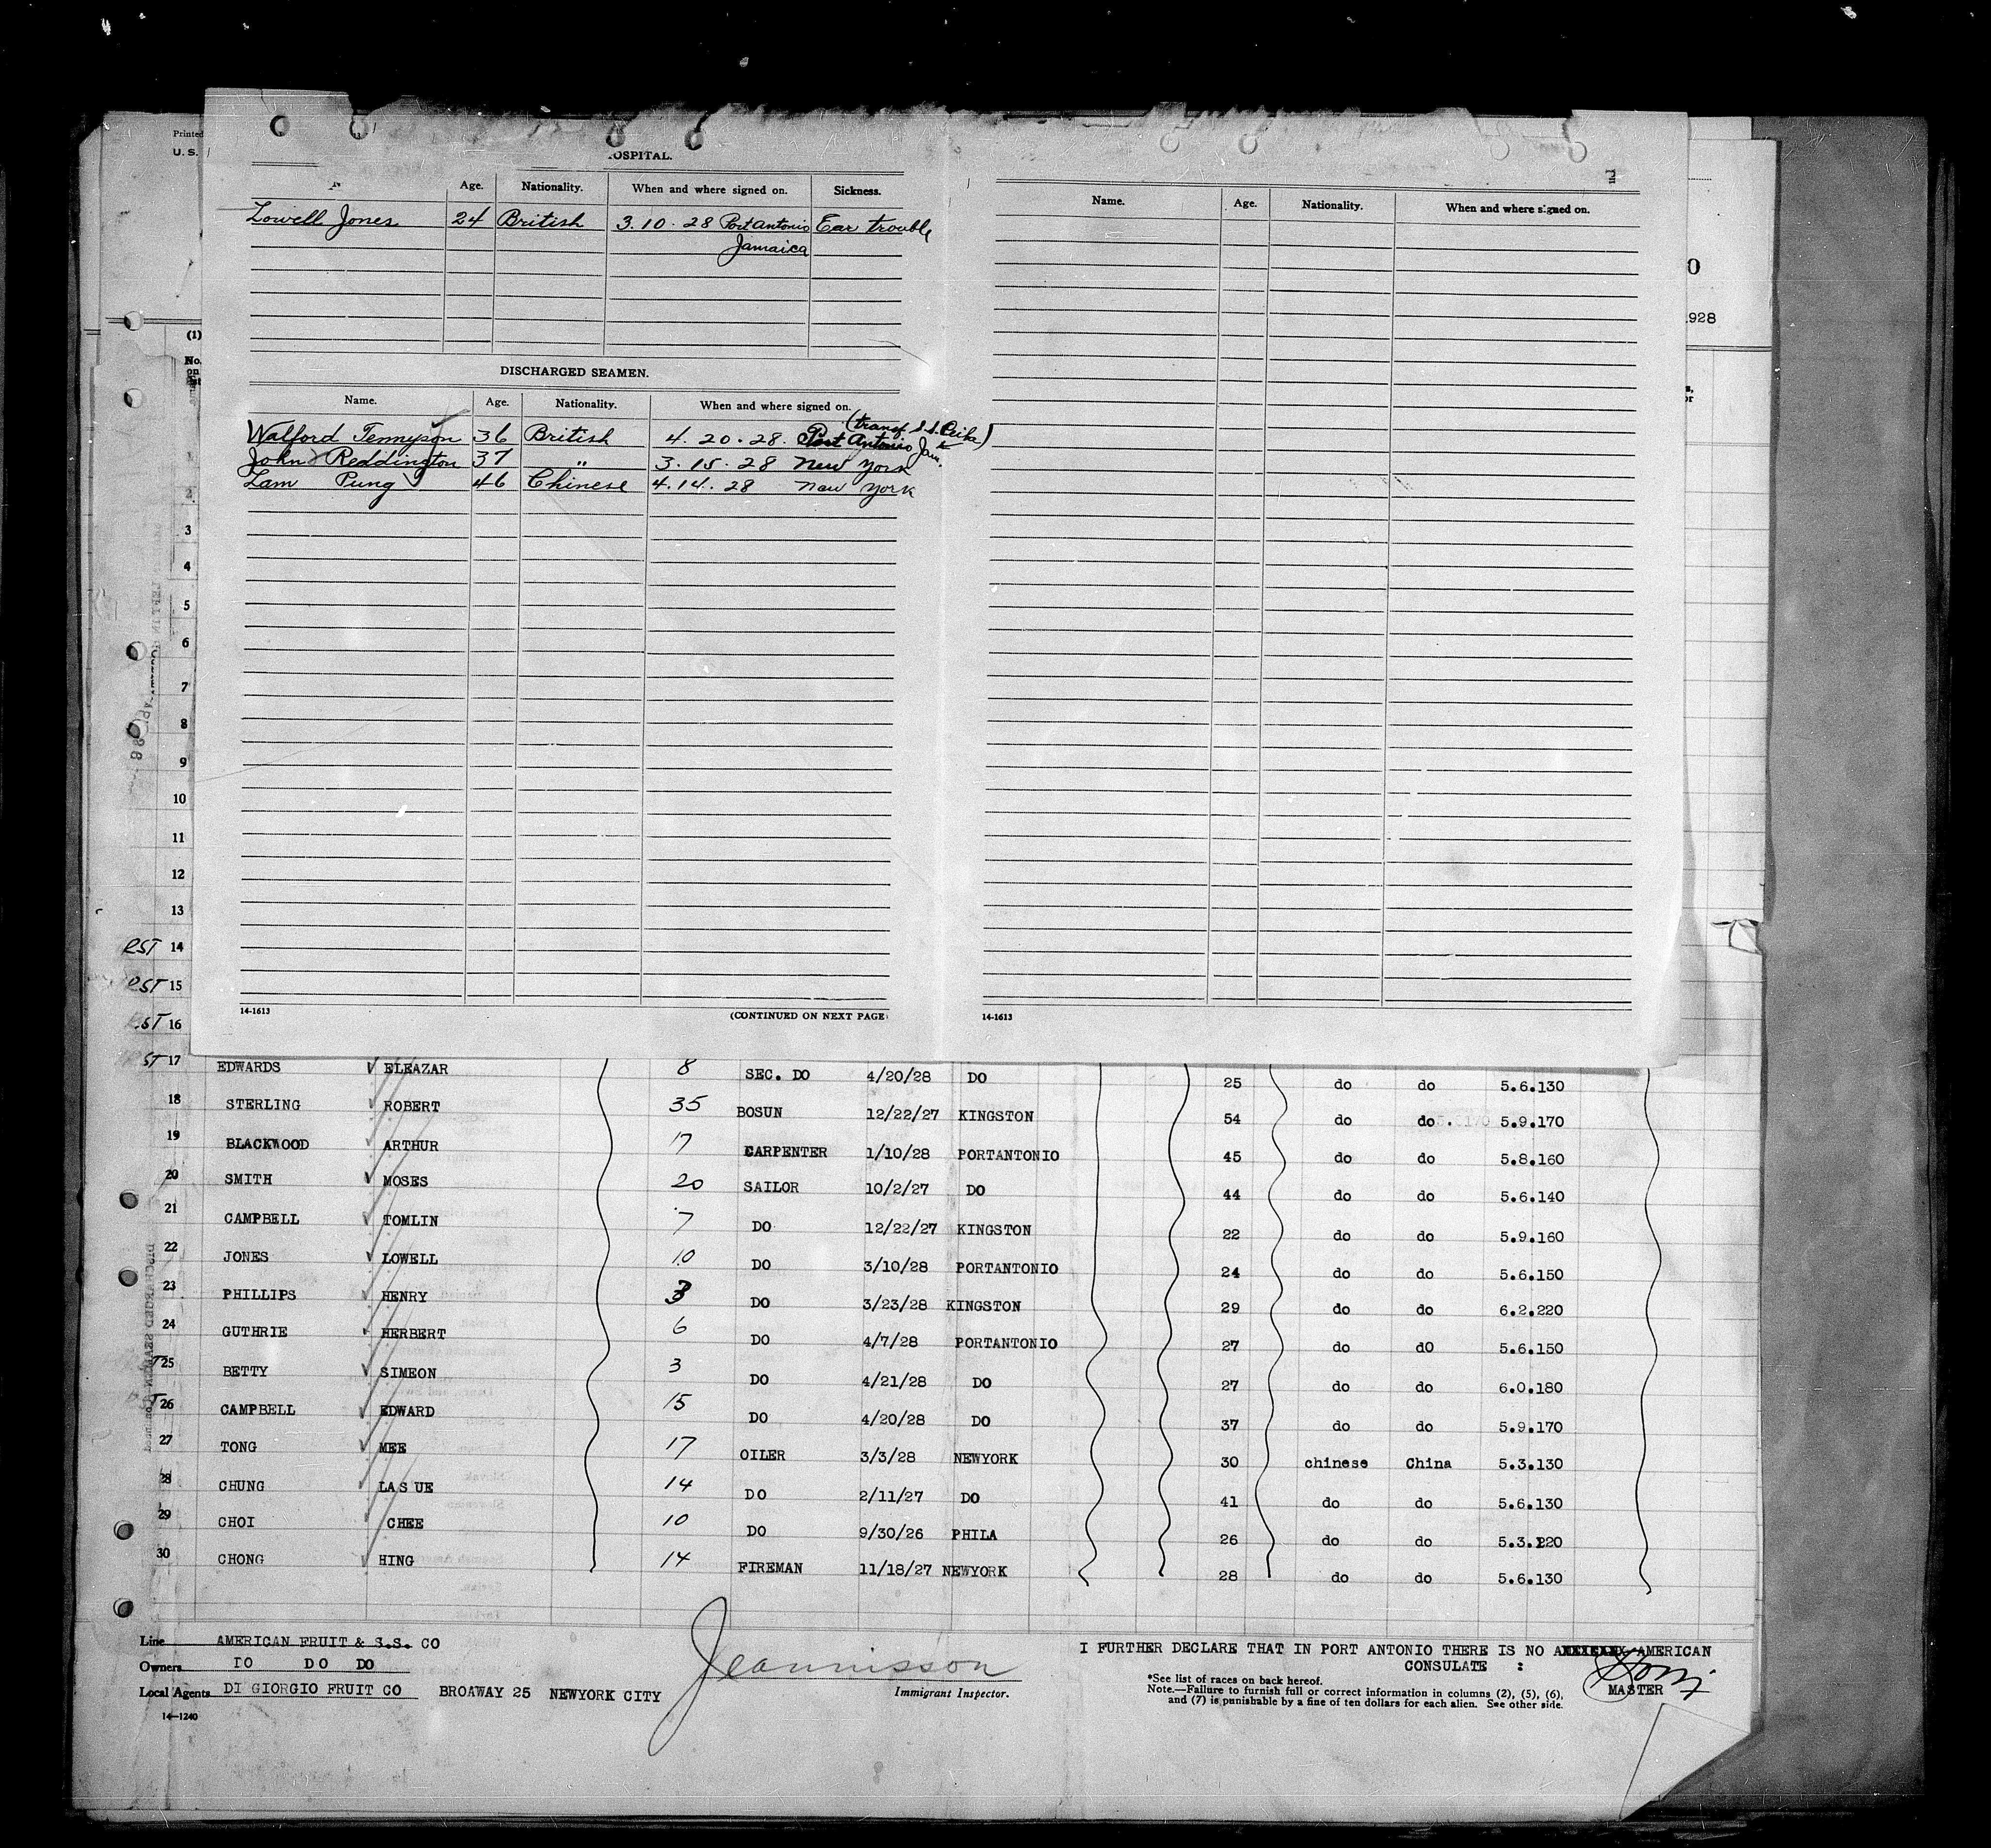 Printed
U. S.
OSPITAL.
Age. Nationality. When and where signed on. Sickness.
Lowell Jones 24 British 3.10.28 Port Antonio Ear trouble
Jamaica
DISCHARGED SEAMEN.
Name. Age. Nationality. When and where signed on.
Walford Tennyson 36 British 4.20.28. Port Antonio Jam.
John Reddington 37 " 3.15.28 New York
Lam Pung 46 Chinese 4.14.28 New York
14-1613 (CONTINUED ON NEXT PAGE
Name. Age. Nationality. When and where signed on.
14-1613
0
928
(1)
No.
on
2
3
4
5
6
7
8
9
10
11
12
13
RST 14
RST 15
RST 16
ST 17 EDWARDS ELEAZAR 8 SEC. DO 4/20/28 DO 25 do do 5.6.130
18 STERLING ROBERT 35 BOSUN 12/22/27 KINGSTON 54 do do. 5.9.170
19 BLACKWOOD ARTHUR 17 CARPENTER 1/10/28 PORTANTONIO 45 do do 5.8.160
20 SMITH MOSES 20 SAILOR 10/2/27 DO 44 do do 5.6.140
21 CAMPBELL TOMLIN 7 DO 12/22/27 KINGSTON 22 do do 5.9.160
22 JONES LOWELL 10 DO 3/10/28 PORTANTONIO 24 do do 5.6.150
23 PHILLIPS HENRY 3 DO 3/23/28 KINGSTON 29 do do 6.2.220
24 GUTHRIE HERBERT 6 DO 4/7/28 PORTANTONIO 27 do dO 5.6.150
25 BETTY SIMEON 3 DO 4/21/28 DO 27 do do 6.0.180
26 CAMPBELL EDWARD 15 DO 4/20/28 DO 37 do do 5.9.170
27 TONG MEE 17 OILER 3/3/28 NEWYORK 30 chinese China 5.3.130
28 CHUNG LAS UE 14 DO 2/11/27 DO 41 do do 5.6.130
29 CHOI CHEE 10 DO 9/30/26 PHILA 26 do do 5.3.220
30 CHONG HING 14 FIREMAN 11/18/27 NEWYORK 28 do do 5.6.130
Line AMERICAN FRUIT & S.S. CO
Owners DO DO DO
Local Agents DI GIORGIO FRUIT CO BROAWAY 25 NEWYORK CITY
14-1240
Jeannisson
Immigrant Inspector.
I FURTHER DECLARE THAT IN PORT ANTONIO THERE IS NO AMERICAN
CONSULATE :
*See list of races on back hereof.
Note.—Failure to furnish full or correct information in columns (2), (5), (6),
and (7) is punishable by a fine of ten dollars for each alien. See other side.
MASTER